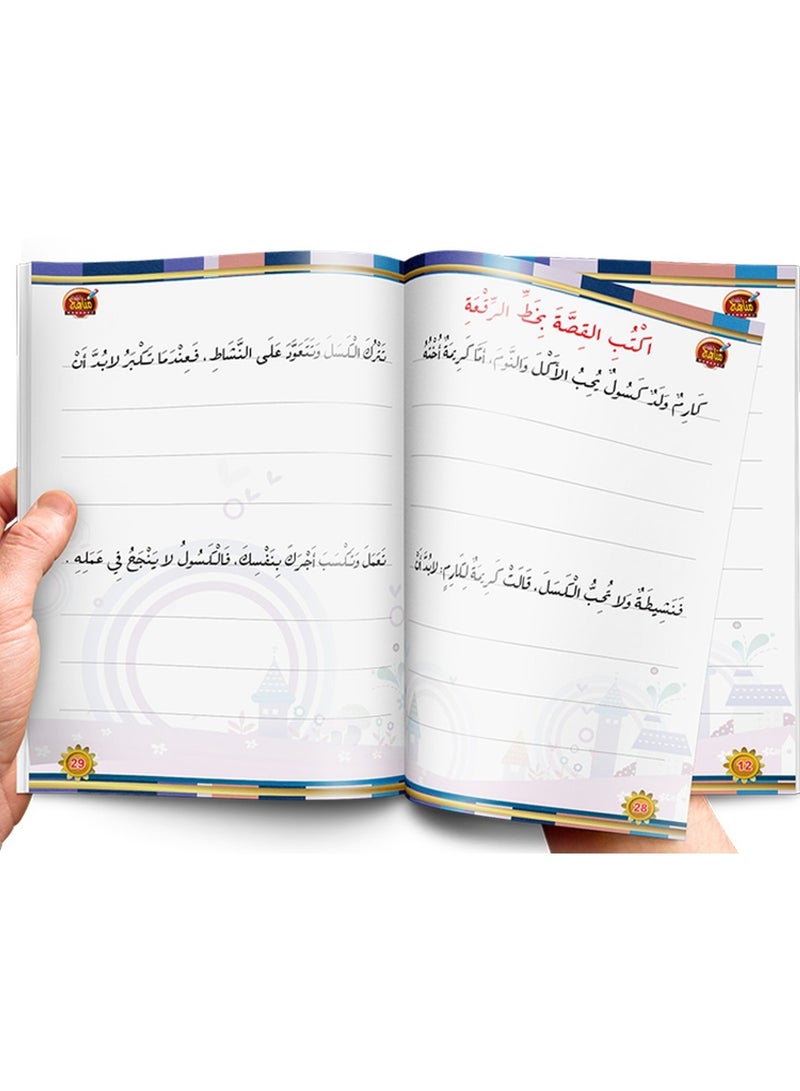 مناهج
مناهج
اكْتُبِ القِصَّةَ بِخَطِّ الرِّقْعَةِ
كَارِمٌ وَلَدٌ كَسُولٌ يُحِبُّ الأَكْلَ وَالنَّومَ، أَمَّا كَرِيمَةُ أُخْتُهُ
فَنَشِيطَةٌ وَلَا تُحِبُّ الْكَسَلَ، قَالَتْ كَرِيمَةٌ لِكَارِمٍ: لَابُدَّ أَنْ
28
12
مناهج
تَتْرُكَ الْكَسَلَ وَتَتَعَوَّدَ عَلَى النَّشَاطِ، فَعِنْدَمَا تَكْبَرُ لَابُدَّ أَنْ
تَعْمَلَ وَتَكْسَبَ أَجْرَكَ بِنَفْسِكَ، فَالْكَسُولُ لَا يَنْجَحُ فِي عَمَلِهِ .
29